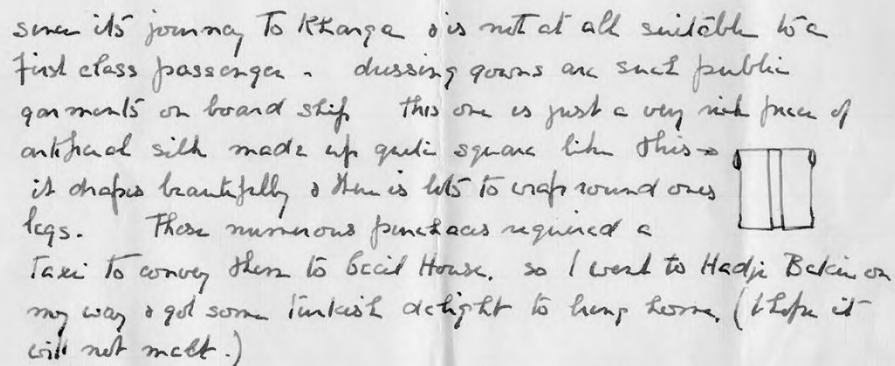 since its journey to Kharga & is not at all suitable to a
first class passenger - dressing gowns are such public
garments on board ship This one is just a very rich piece of
artificial silk made up quite square like this -
it drapes beautifully & there is lots to wrap round ones
legs. These numerous purchases required a
Taxi to convey them to Cecil House, so I went to Hadji Bekir on
my way & got some Turkish delight to bring home, (I hope it
will not melt.)